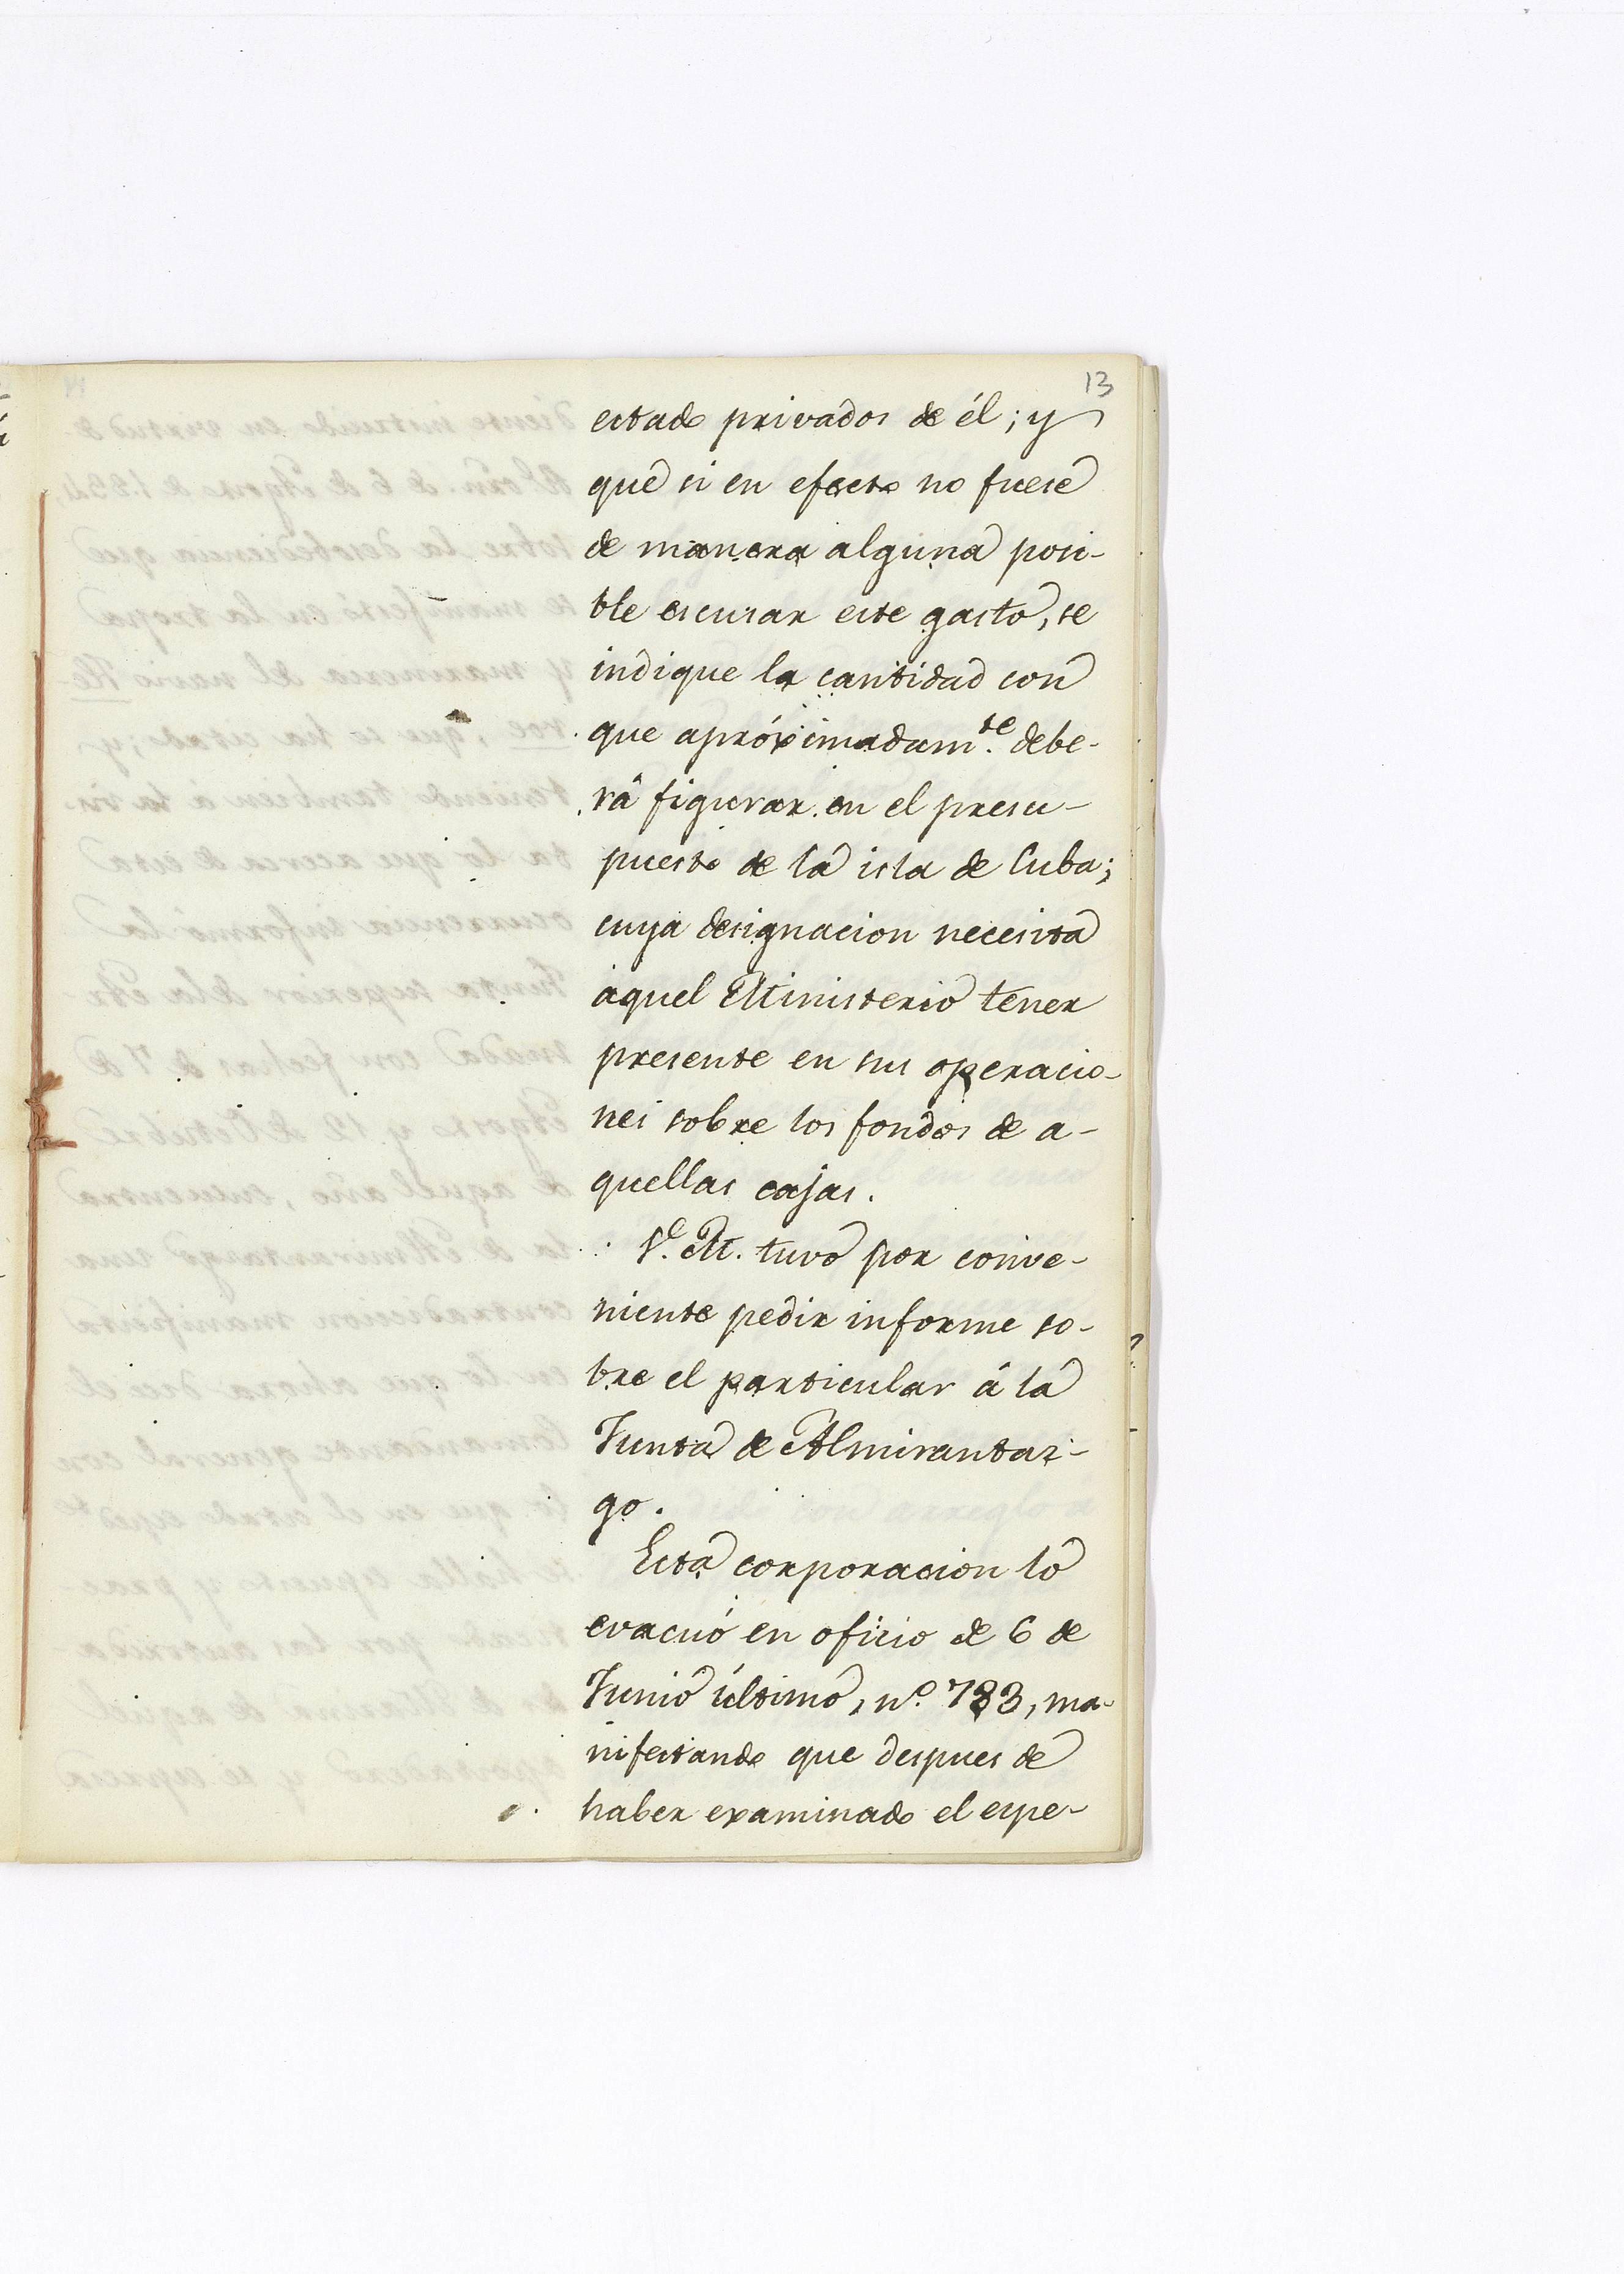 13
estado privados de él; y
que si en efecto no fuese
de manera alguna posi-
ble escusar este gasto, se
indique la cantidad con
que apróximadam.te debe-
rá figurar en el presu-
puesto de la isla de Cuba;
cuya designacion necesita
aquel Ministerio tener
presente en sus operacio-
nes sobre los fondos de a-
quellas cajas.
V. M. tuvo por conve-
niente pedir informe so-
bre el particular á la
Junta de Almirantaz-
go.
Esta corporacion lo
evacuó en oficio de 6 de
Junio último, nº. 783, ma-
nifestando que despues de
haber examinado el espe-